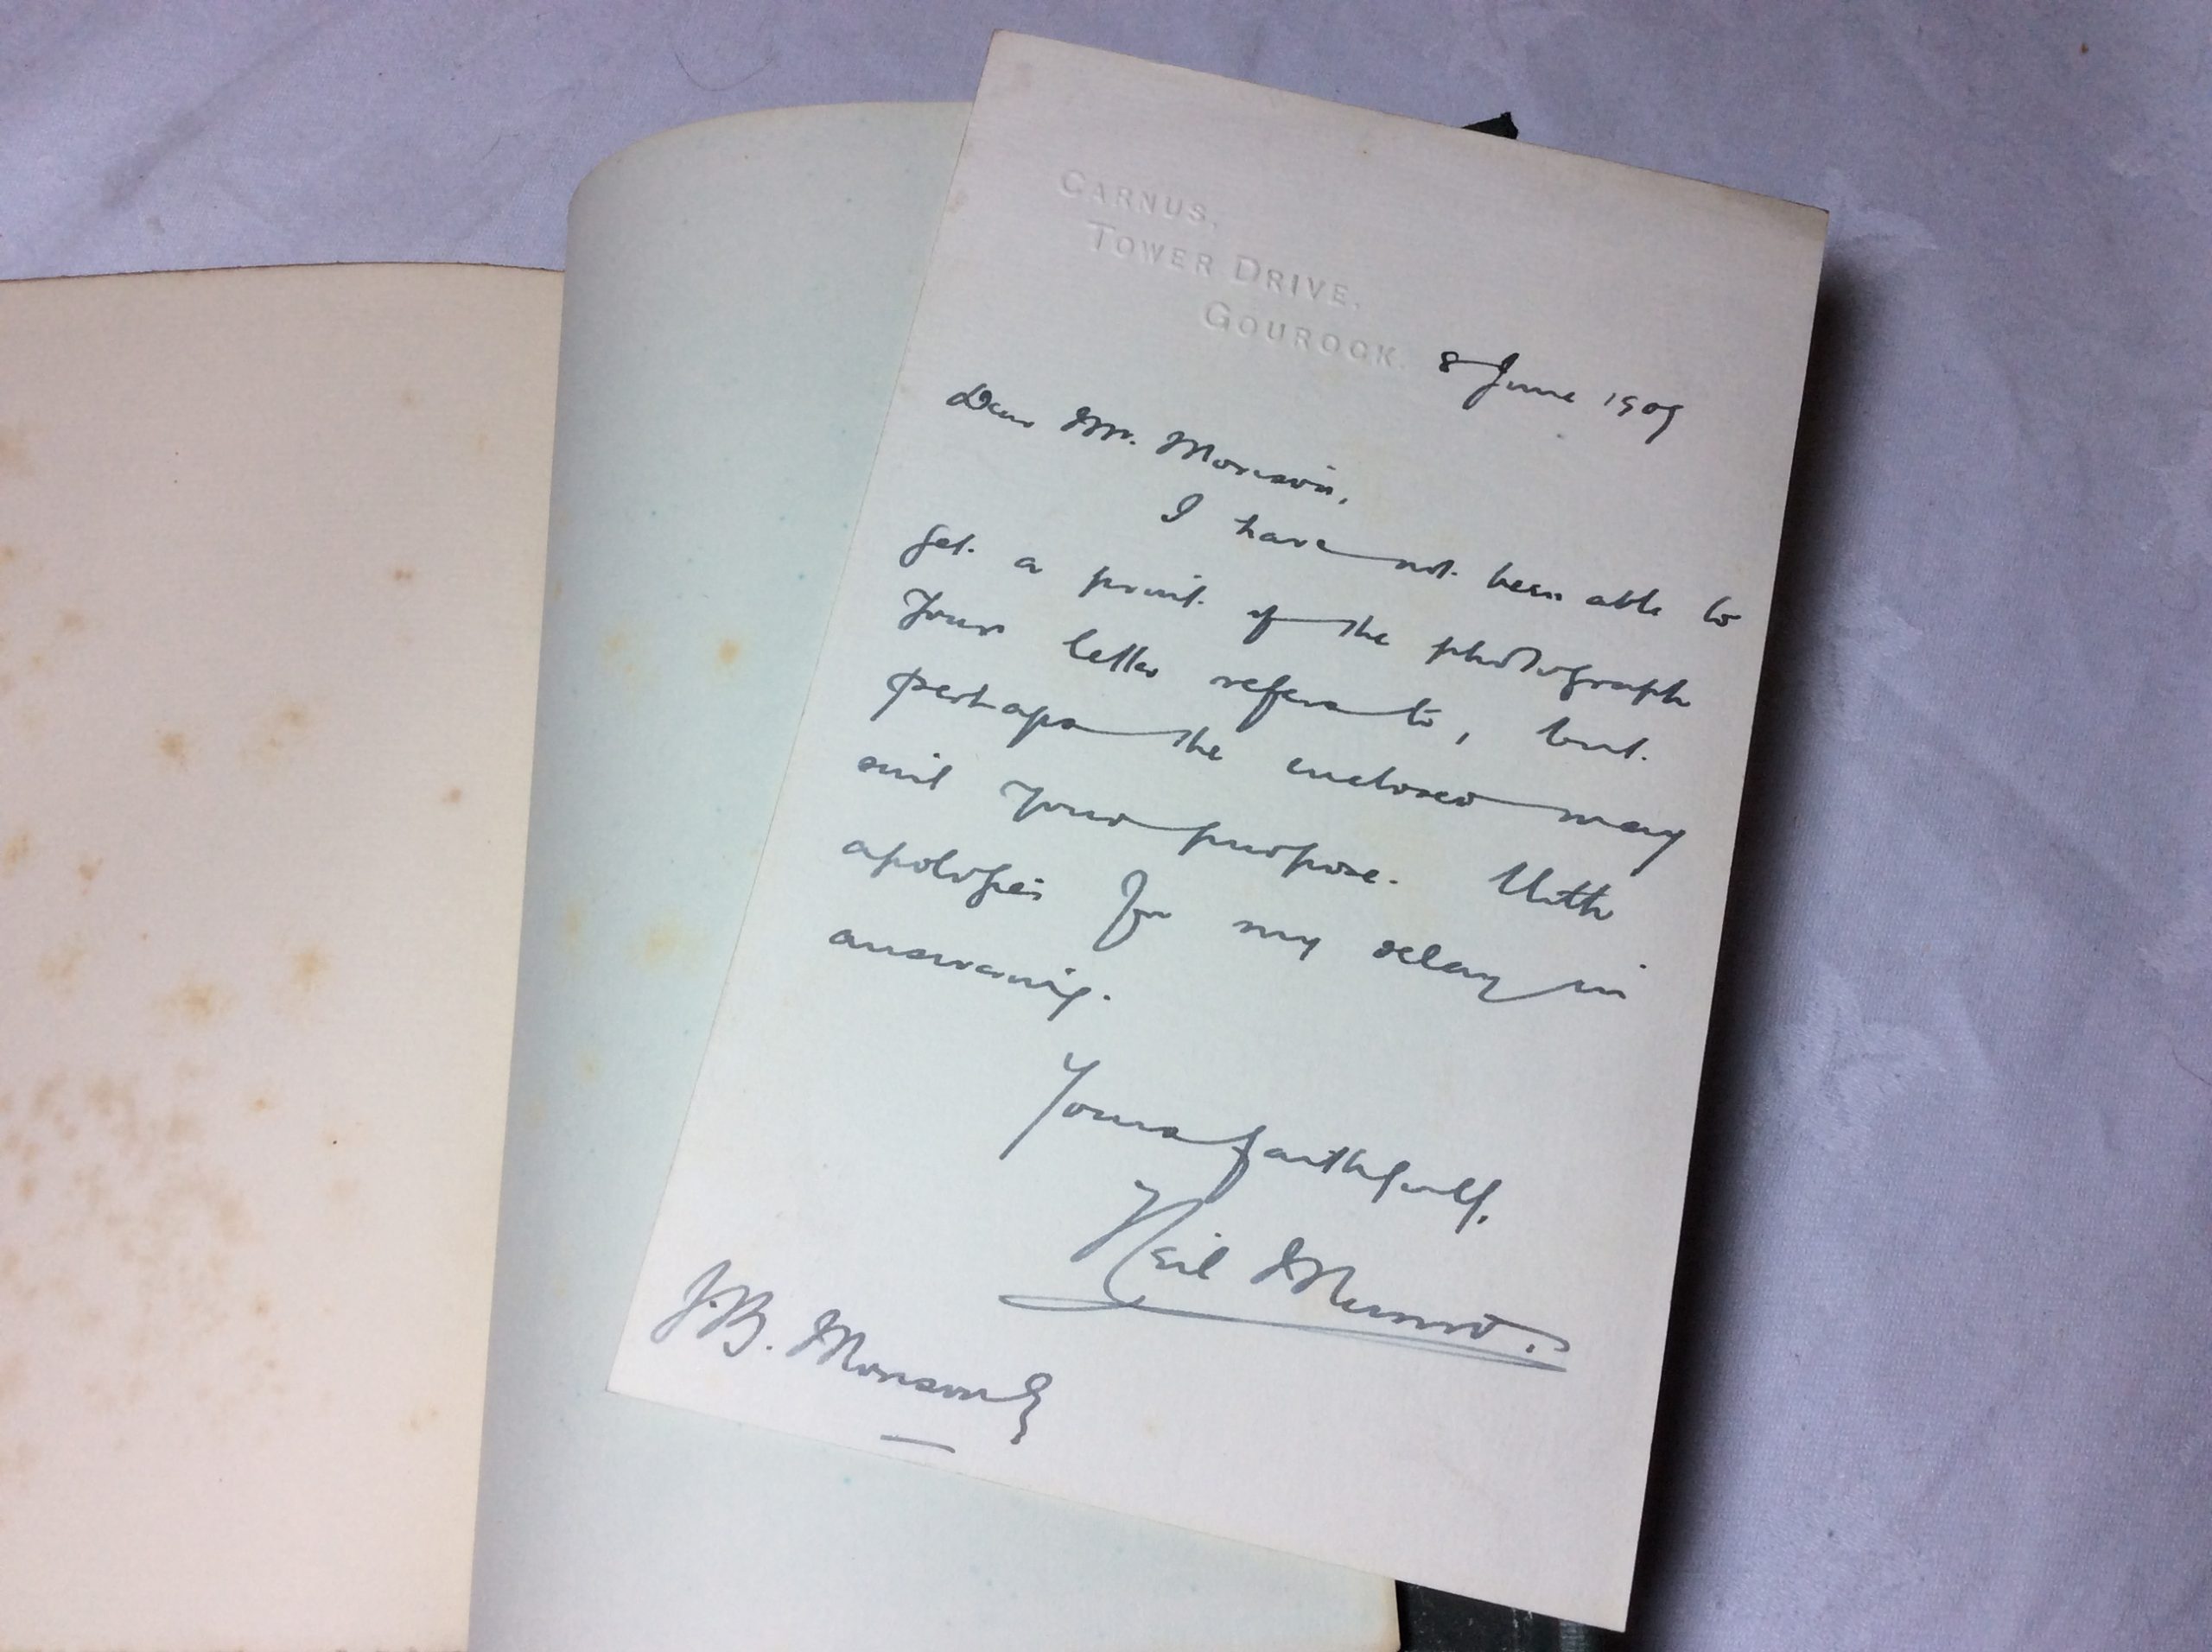 CARNUS,
TOWER DRIVE,
GOUROCK.
8 June 1909
Dear Mr. Morison,
I have not been able to
get a print of the photograph
your letter refers to, but
perhaps the enclosed may
suit your purpose. With
apologies for my delay in
answering.
Yours faithfully,
Neil Munro.
J. B. Morison Esq